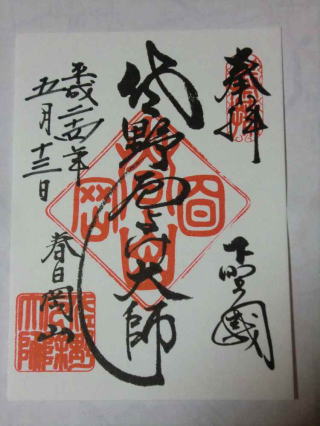 奉拝
下野國
佐野厄よけ大師
平成二十四年
五月十三日
春日岡山